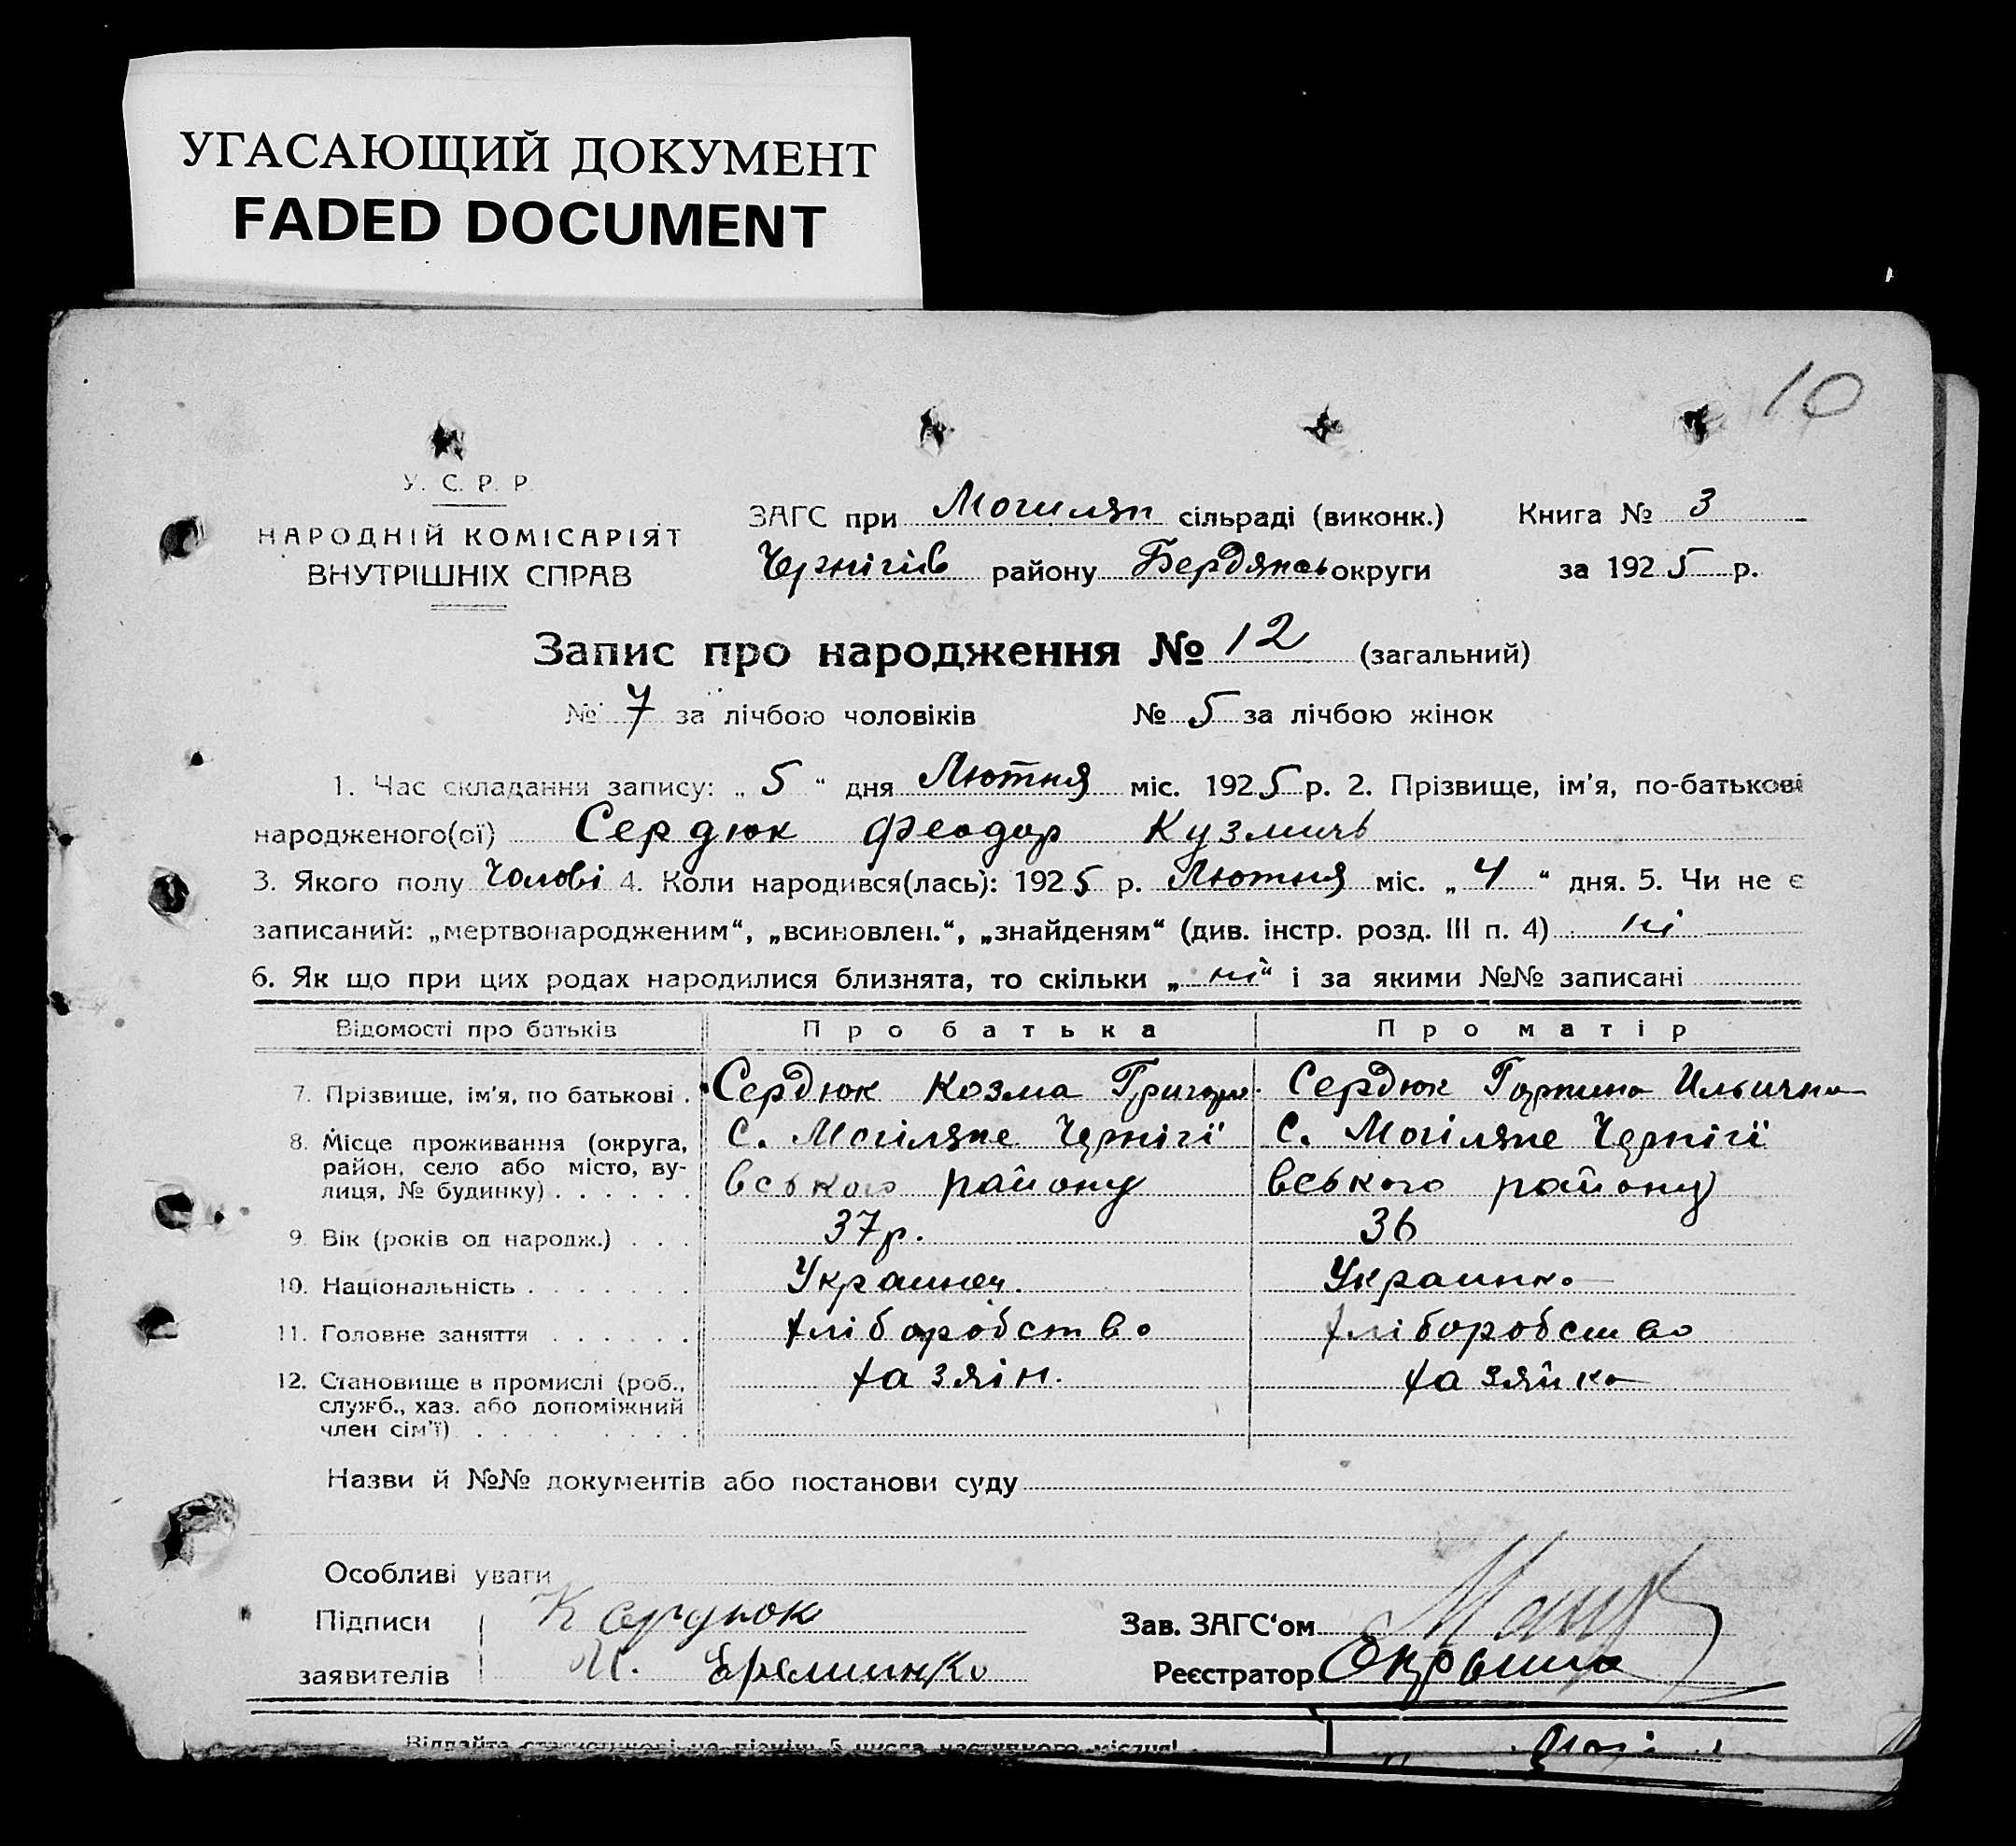 УГАСАЮЩИЙ ДОКУМЕНТ
FADED DOCUMENT
10
У. С. Р. Р.
НАРОДНІЙ КОМІСАРІЯТ
ВНУТРІШНІХ СПРАВ
ЗАГС при Могилян сільраді (виконк.) Книга № 3
Чернігів району Бердянсь округи за 1925 р.
Запис про народження № 12 (загальний)
№ 7 за лічбою чоловіків № 5 за лічбою жінок
1. Час складання запису: „ 5 “ дня Лютня міс. 1925 р. 2. Прізвище, ім'я, по-батькові
народженого(ої) Сердюк Феодор Кузмичь
3. Якого полу Чолові 4. Коли народився(лась): 1925 р. Лютня міс. „ 4 “ дня. 5. Чи не є
записаний: „мертвонародженим“, „всиновлен.“, „знайденям“ (див. інстр. розд. III п. 4) ні
6. Як що при цих родах народилися близнята, то скільки „ ні “ і за якими №№ записані
Відомості про батьків Про батька Про матір
7. Прізвище, ім'я, по батькові . Сердюк Козма Григор Сердюк Горпина Ильична
8. Місце проживання (округа, район, село або місто, ву-лиця, № будинку) . . . . . . С. Могіляне Чернігі С. Могіляне Чернігі
вського району вського району
9. Вік (років од народж.) . . . 37р. 36
10. Національність . . . . . . . Украинец. Украинка
11. Головне заняття . . . . . . хліборобство хліборобство
12. Становище в промислі (роб., служб., хаз. або допоміжний член сім'ї) . . . . . . . . . хазяін. хазяйка
Назви й №№ документів або постанови суду
Особливі уваги
Підписи К Сердюк Зав. ЗАГС'ом
заявителів И. Ереминко Реєстратор
Відпайте